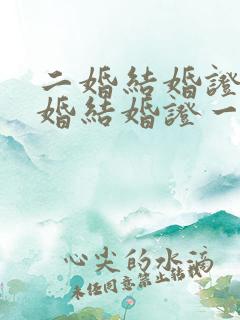 二婚結婚證
婚結婚證一
心尖的水滴
未經同意禁止轉載